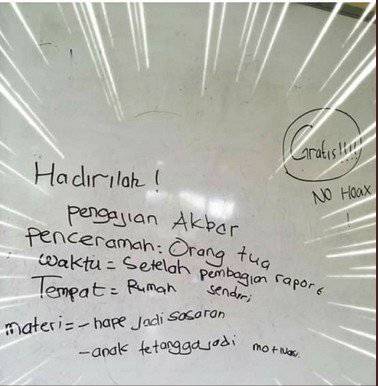 Gratis!!!!!
NO Hoax
!
Hadirilah !
pengajian Akbar
penceramah: Orang tua
waktu = Setelah pembagian rapore
Tempat = Rumah sendiri
materi = - hape Jadi sasaran
- anak tetangga jadi motivasi